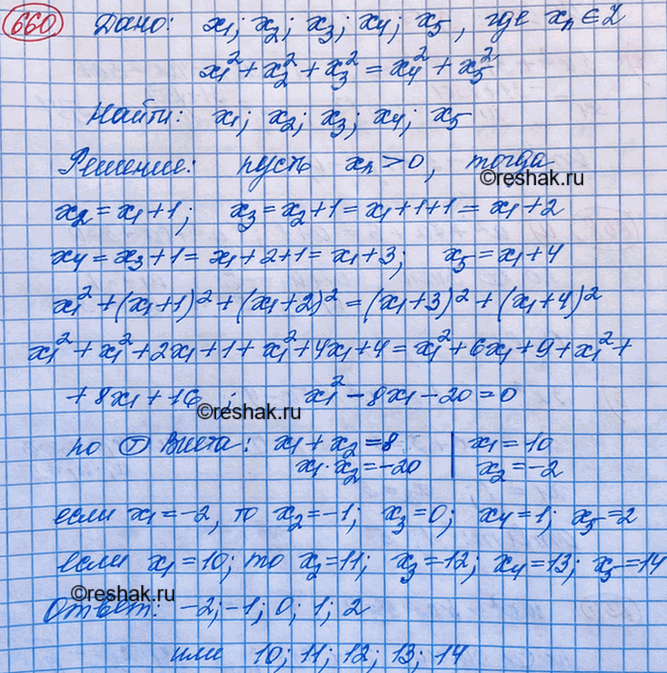 660 Дано: x₁; x₂; x₃; x₄; x₅, где xₙ ∈ Z
x₁² + x₂² + x₃² = x₄² + x₅²
Найти: x₁; x₂; x₃; x₄; x₅
Решение: пусть xₙ > 0, тогда
©reshak.ru
x₂ = x₁ + 1; x₃ = x₂ + 1 = x₁ + 1 + 1 = x₁ + 2
x₄ = x₃ + 1 = x₁ + 2 + 1 = x₁ + 3; x₅ = x₁ + 4
x₁² + (x₁ + 1)² + (x₁ + 2)² = (x₁ + 3)² + (x₁ + 4)²
x₁² + x₁² + 2x₁ + 1 + x₁² + 4x₁ + 4 = x₁² + 6x₁ + 9 + x₁² +
+ 8x₁ + 16; x₁² - 8x₁ - 20 = 0
©reshak.ru
по Ⓣ Виета: x₁ + x₂ = 8 | x₁ = 10
x₁ · x₂ = -20 | x₂ = -2
если x₁ = -2, то x₂ = -1; x₃ = 0; x₄ = 1; x₅ = 2
если x₁ = 10; то x₂ = 11; x₃ = 12; x₄ = 13; x₅ = 14
©reshak.ru
Ответ: -2; -1; 0; 1; 2
или 10; 11; 12; 13; 14